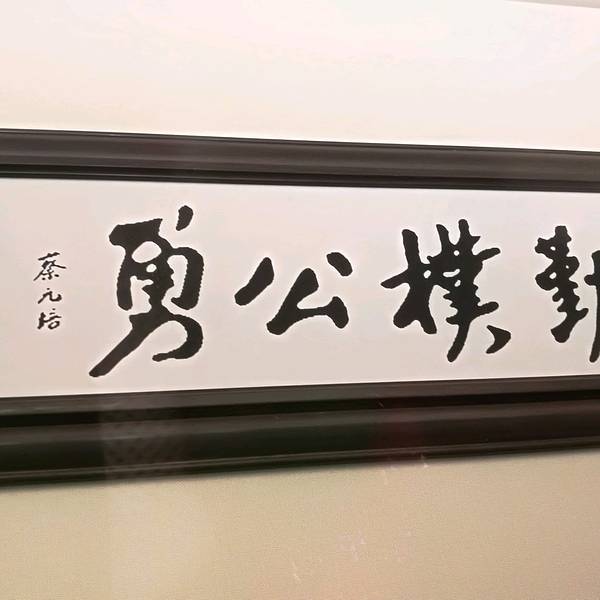 勤樸公勇
蔡元培